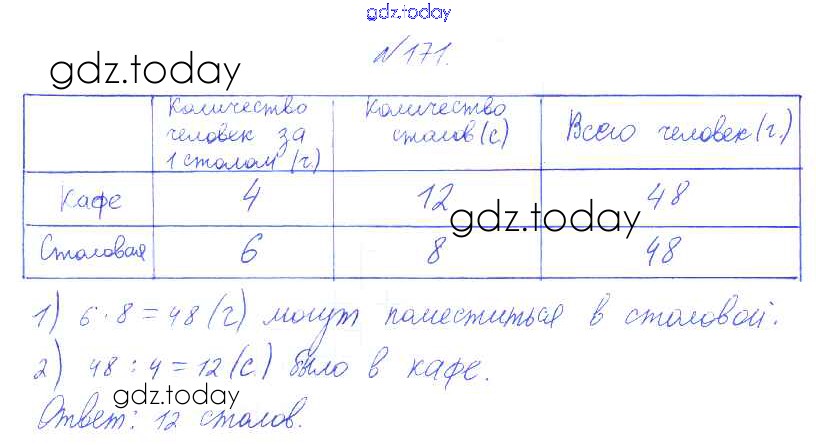 gdz.today
№171.
gdz.today
Количество человек за 1 столом (ч.)
Количество столов (с.)
Всего человек (ч.)
Кафе 4 12 48
gdz.today
Столовая 6 8 48
1) 6·8=48 (ч) могут поместиться в столовой.
2) 48:4=12 (с.) было в кафе.
gdz.today
Ответ: 12 столов.